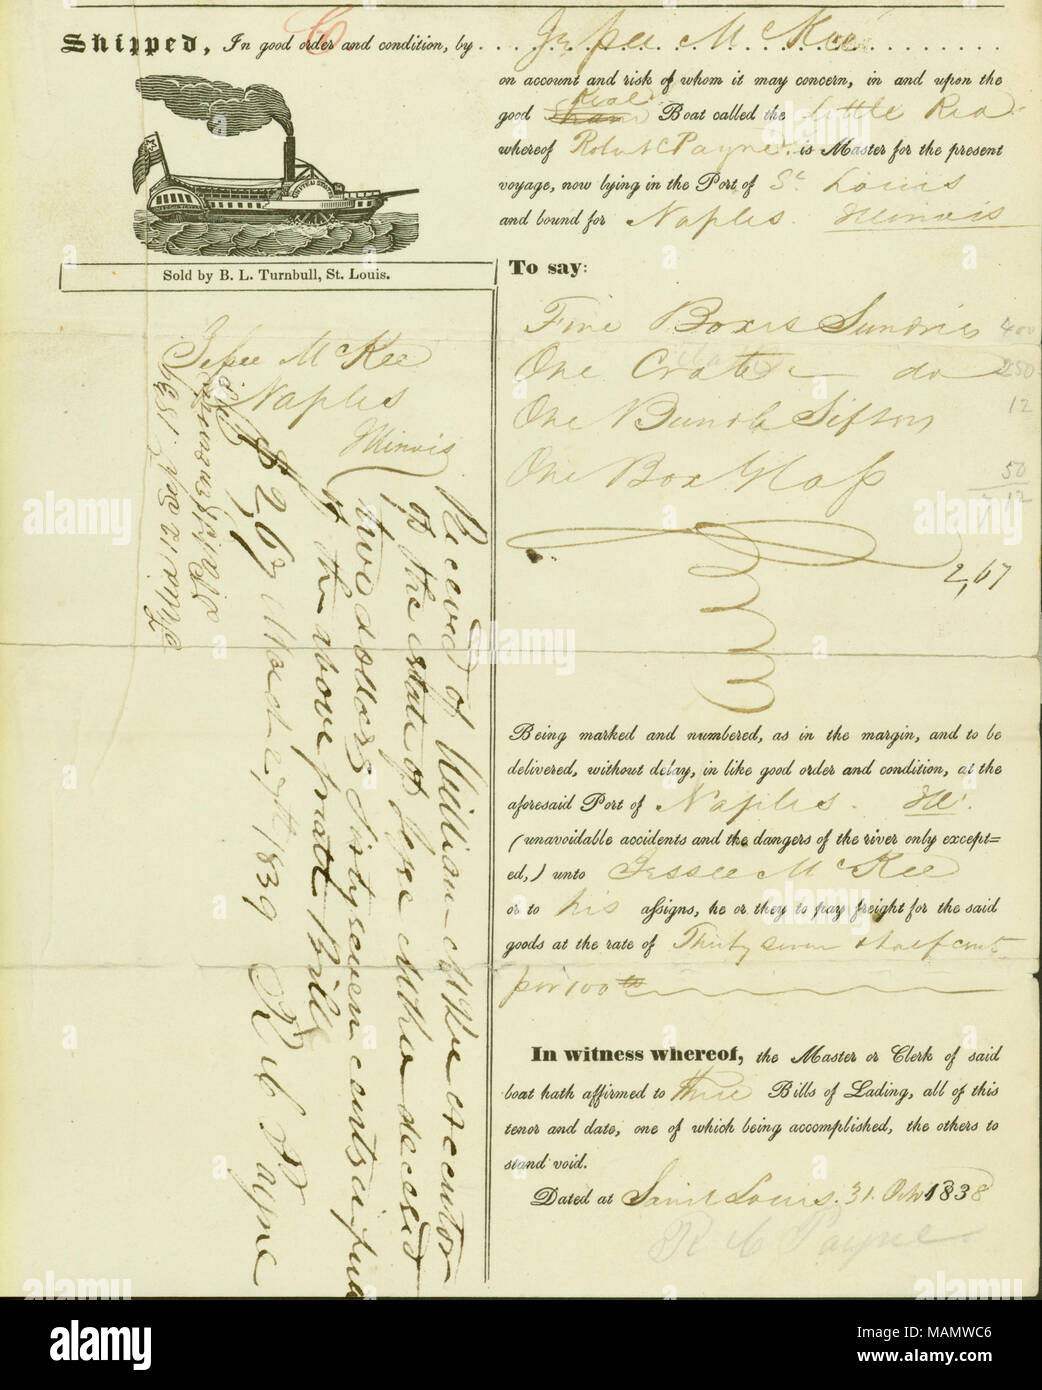 Shipped, In good order and condition, by Jessee McKee
on account and risk of whom it may concern, in and upon the
good Keel Boat called the Little Red
whereof Robert C Payne is Master for the present
voyage, now lying in the Port of St Louis
and bound for Naples. Illinois
UNITED STATES
Sold by B. L. Turnbull, St. Louis.
To say:
Five Boxes Sundries 400
One Crate do 250
One Bundle Sifters 12
One Box Glass 50
712
2,67
Jessee McKee
Naples
Illinois
Being marked and numbered, as in the margin, and to be
delivered, without delay, in like good order and condition, at the
aforesaid Port of Naples. Ill.
(unavoidable accidents and the dangers of the river only except=
ed,) unto Jessee McKee
or to his assigns, he or they to pay freight for the said
goods at the rate of Thirty seven & half cents
per 100 lb
In witness whereof, the Master or Clerk of said
boat hath affirmed to three Bills of Lading, all of this
tenor and date, one of which being accomplished, the others to
stand void.
Dated at Saint Louis. 31. Octr 1838
R C Payne
Received of William McKee executor
of the estate of Jesse McKee deceased
two dollars sixty seven cents in full
of the above freight Bill
$2,67 March 1839 Rob C Payne
alamy
Image ID: MAMWC6
www.alamy.com